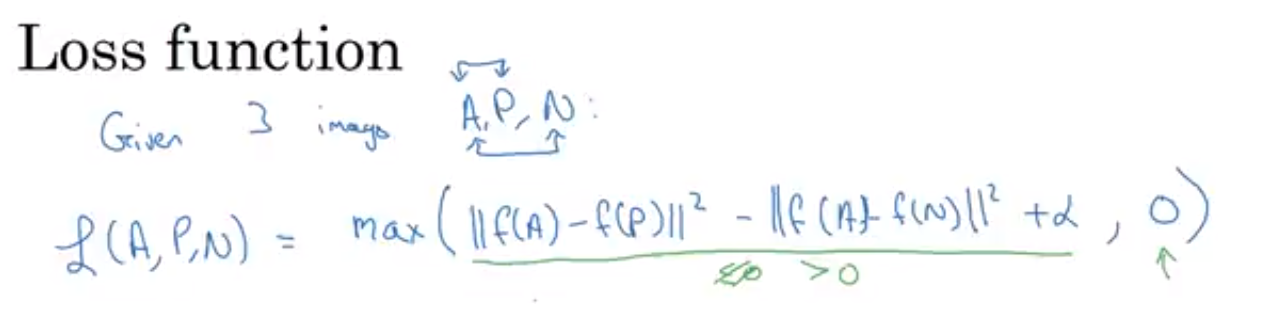 Loss function
Given 3 images A, P, N:
L(A,P,N) = max(||f(A)-f(P)||² - ||f(A)-f(N)||² + α, 0)
≤0 >0